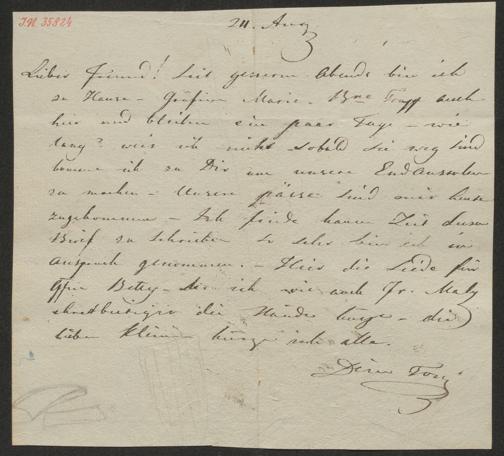 J.N. 35824
24. Aug
Lieber Freund! Seit gestern Abends bin ich
zu Hause – Gräfinn Marie – auch
hier und bleiben ein paar Tage – wie
lang? weis ich nicht sobald sie weg sind
komme ich zu Dir um unsere
zu machen – Unsere Pässe sind mir heute
zugekommen – Ich finde kaum Zeit diesen
Brief zu schreiben so sehr bin ich in
Anspruch genommen. – Hier die Lieder für
Betty – ich wie auch Fr.
die Hände küsse – die
lieben Kleinen küsse ich alle.
Dein